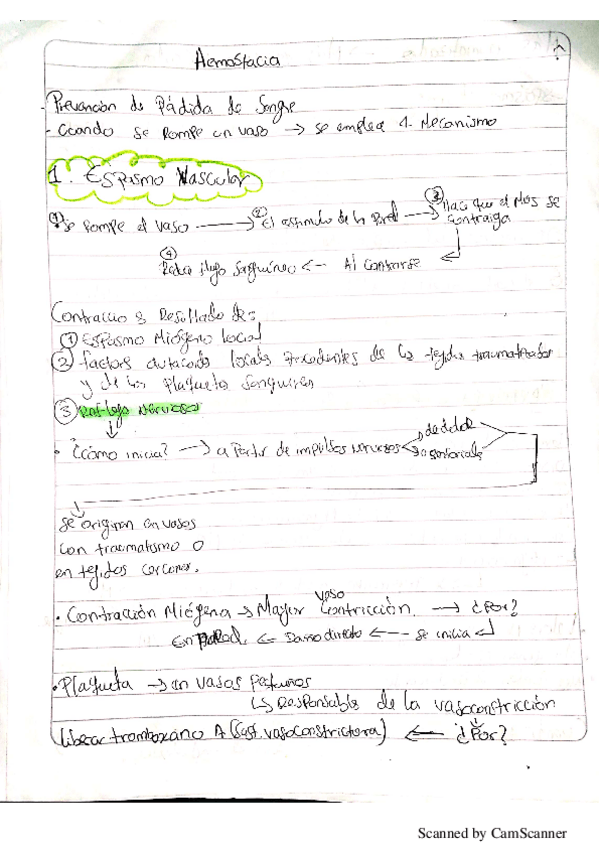 Hemostacia
- Prevención de Pádida de Sangre
- Cuando se Rompe un vaso → se emplea 1. Mecanismo
1. Espasmo Vascular
① Se rompe el vaso → ② El estimulo de la Pared → ③ Hace que el Mos se contraiga
④ Reduce flujo Sanguíneo ← Al Contrarse
Contraccio es Resultado de:
① Espasmo Miógeno local
② factores autacoids locales Procedentes de los tejidos traumatizados
y de las Plaquetas Sanguineas
③ Reflejo nervioso
• ¿Cómo inicia? → a Partir de impulsos nerviosos de dolor o sensoriales
se originan en vasos
con traumatismo o
en tejidos cercanos.
• Contracción Miógena → Mayor vaso Contricción → ¿Por?
En Pared ← Danno directo ← se inicia
• Plaqueta → en vasos Pequeños
↳ Responsable de la vasoconstricción
liberar tromboxano A (Sust. vasoconstrictora) ← ¿Por?
Scanned by CamScanner